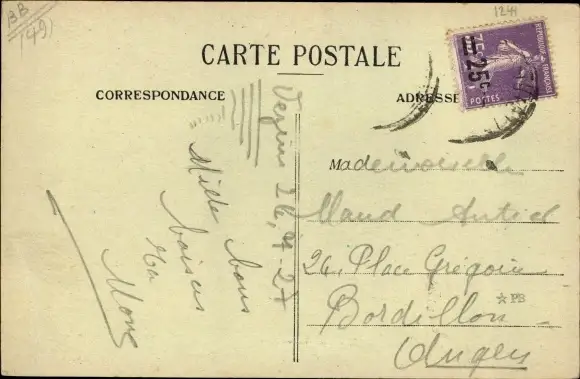 BB
(49)
1244
CARTE POSTALE
CORRESPONDANCE
ADRESSE
REPUBLIQUE FRANÇAISE
=25c
35c
POSTES
Vezins 26, 4-27
Mille bons
baisers
ta
Mone
Mademoiselle
Maud Antier
26, Place Grégoire
Bordillon
☆PB
Angers